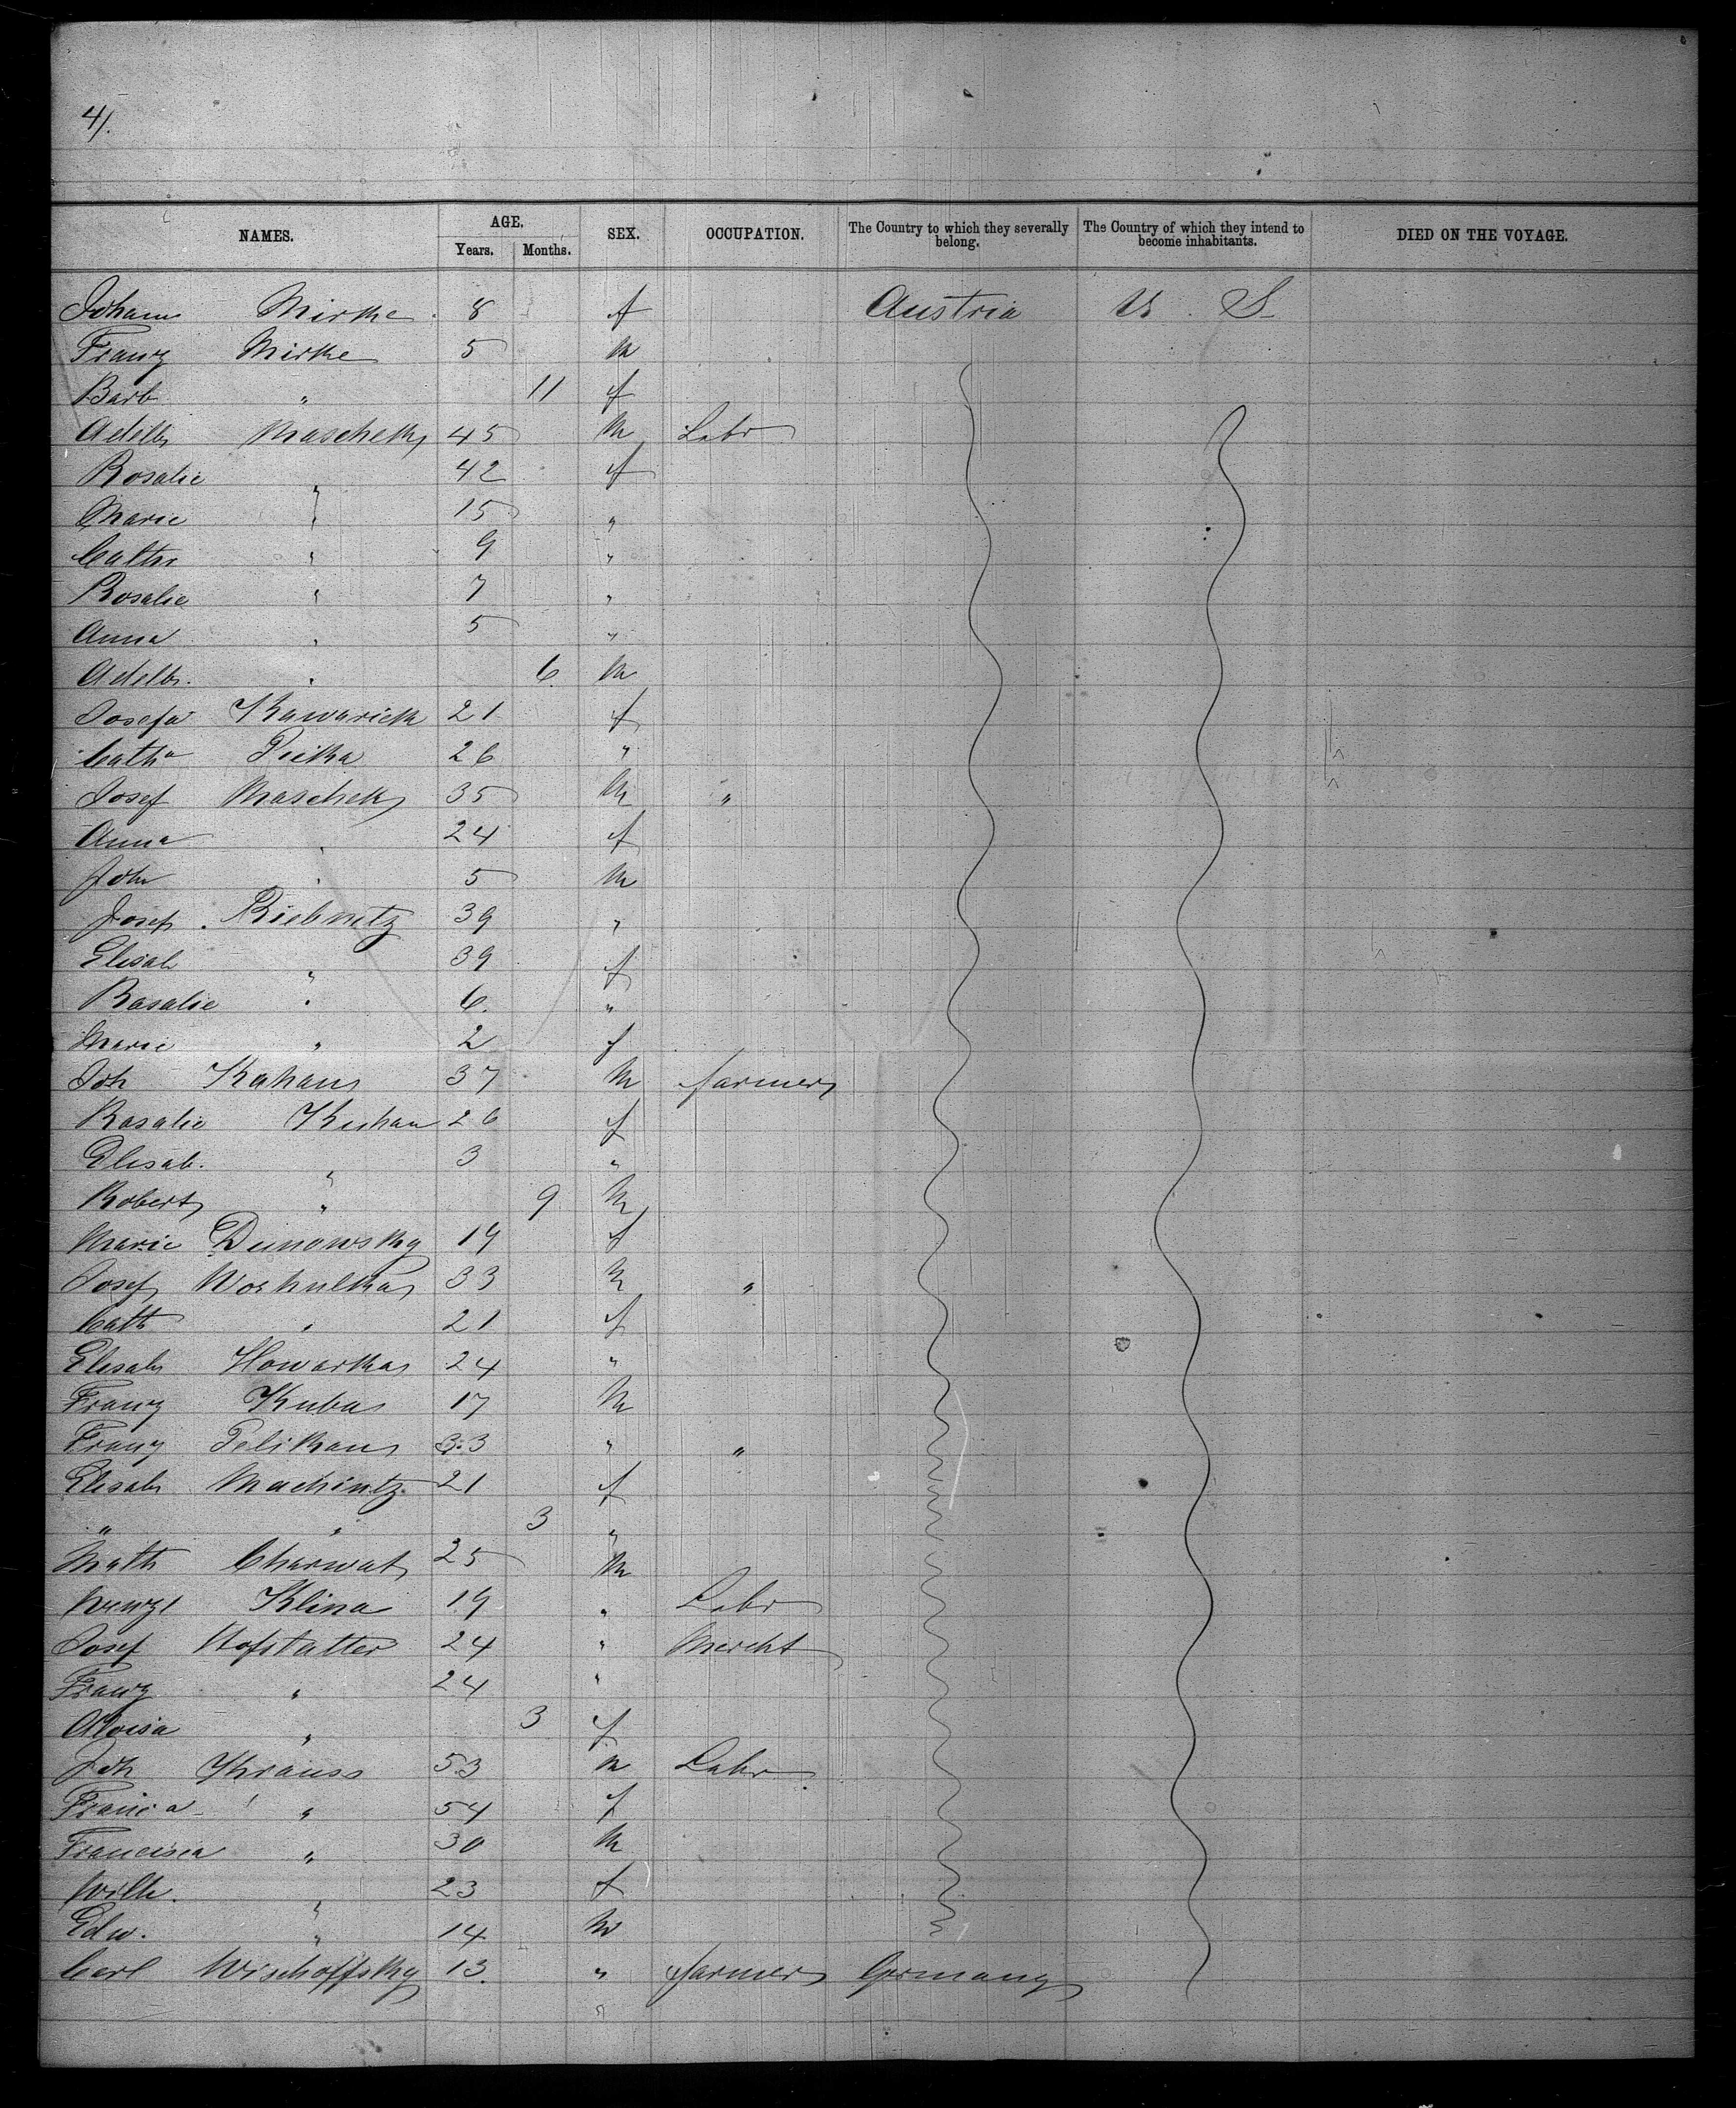 4/.
NAMES. AGE. Years. Months. SEX. OCCUPATION. The Country to which they severally belong. The Country of which they intend to become inhabitants. DIED ON THE VOYAGE.
Johann Mirke 8 f Austria U. S.
Franz Mirke 5 M
Barb " 11 f
Adelb Maschek 45 M Labr
Rosalie " 42 f
Marie " 15 "
Cathr " 9 "
Rosalie " 7 "
Anna " 5 "
Adelb. " 6 M
Josefa Kawarick 21 f
Catha 26 "
Josef Maschek 35 M "
Anna " 24 f
John " 5 M
Josef Riebnitz 39 "
Elisab " 39 f
Rosalie " 6 "
Marie " 2 f
Joh Kahan 37 M farmer
Rosalie Kuhan 26 f
Elisab. " 3 "
Robert " 9 M
Marie Dunowsky 19 f
Josef 33 M "
Cath " 21 f
Elisab Howarka 24 "
Franz Kuba 17 M
Franz Pelikan 33 " "
Elisab Machintz 21 f
" " 3 "
Math Charwat 25 M
Wenzl Klina 19 " Labr
Josef Hofstatter 24 " Mercht
Franz " 24 "
Aloisa " 3 f
Joh Krauss 53 M Labr
Franca " 54 f
Francisca " 30 M
Wilh. " 23 f
Edw. " 14 M
Carl Wischoffsky 13 " farmer Germany
"